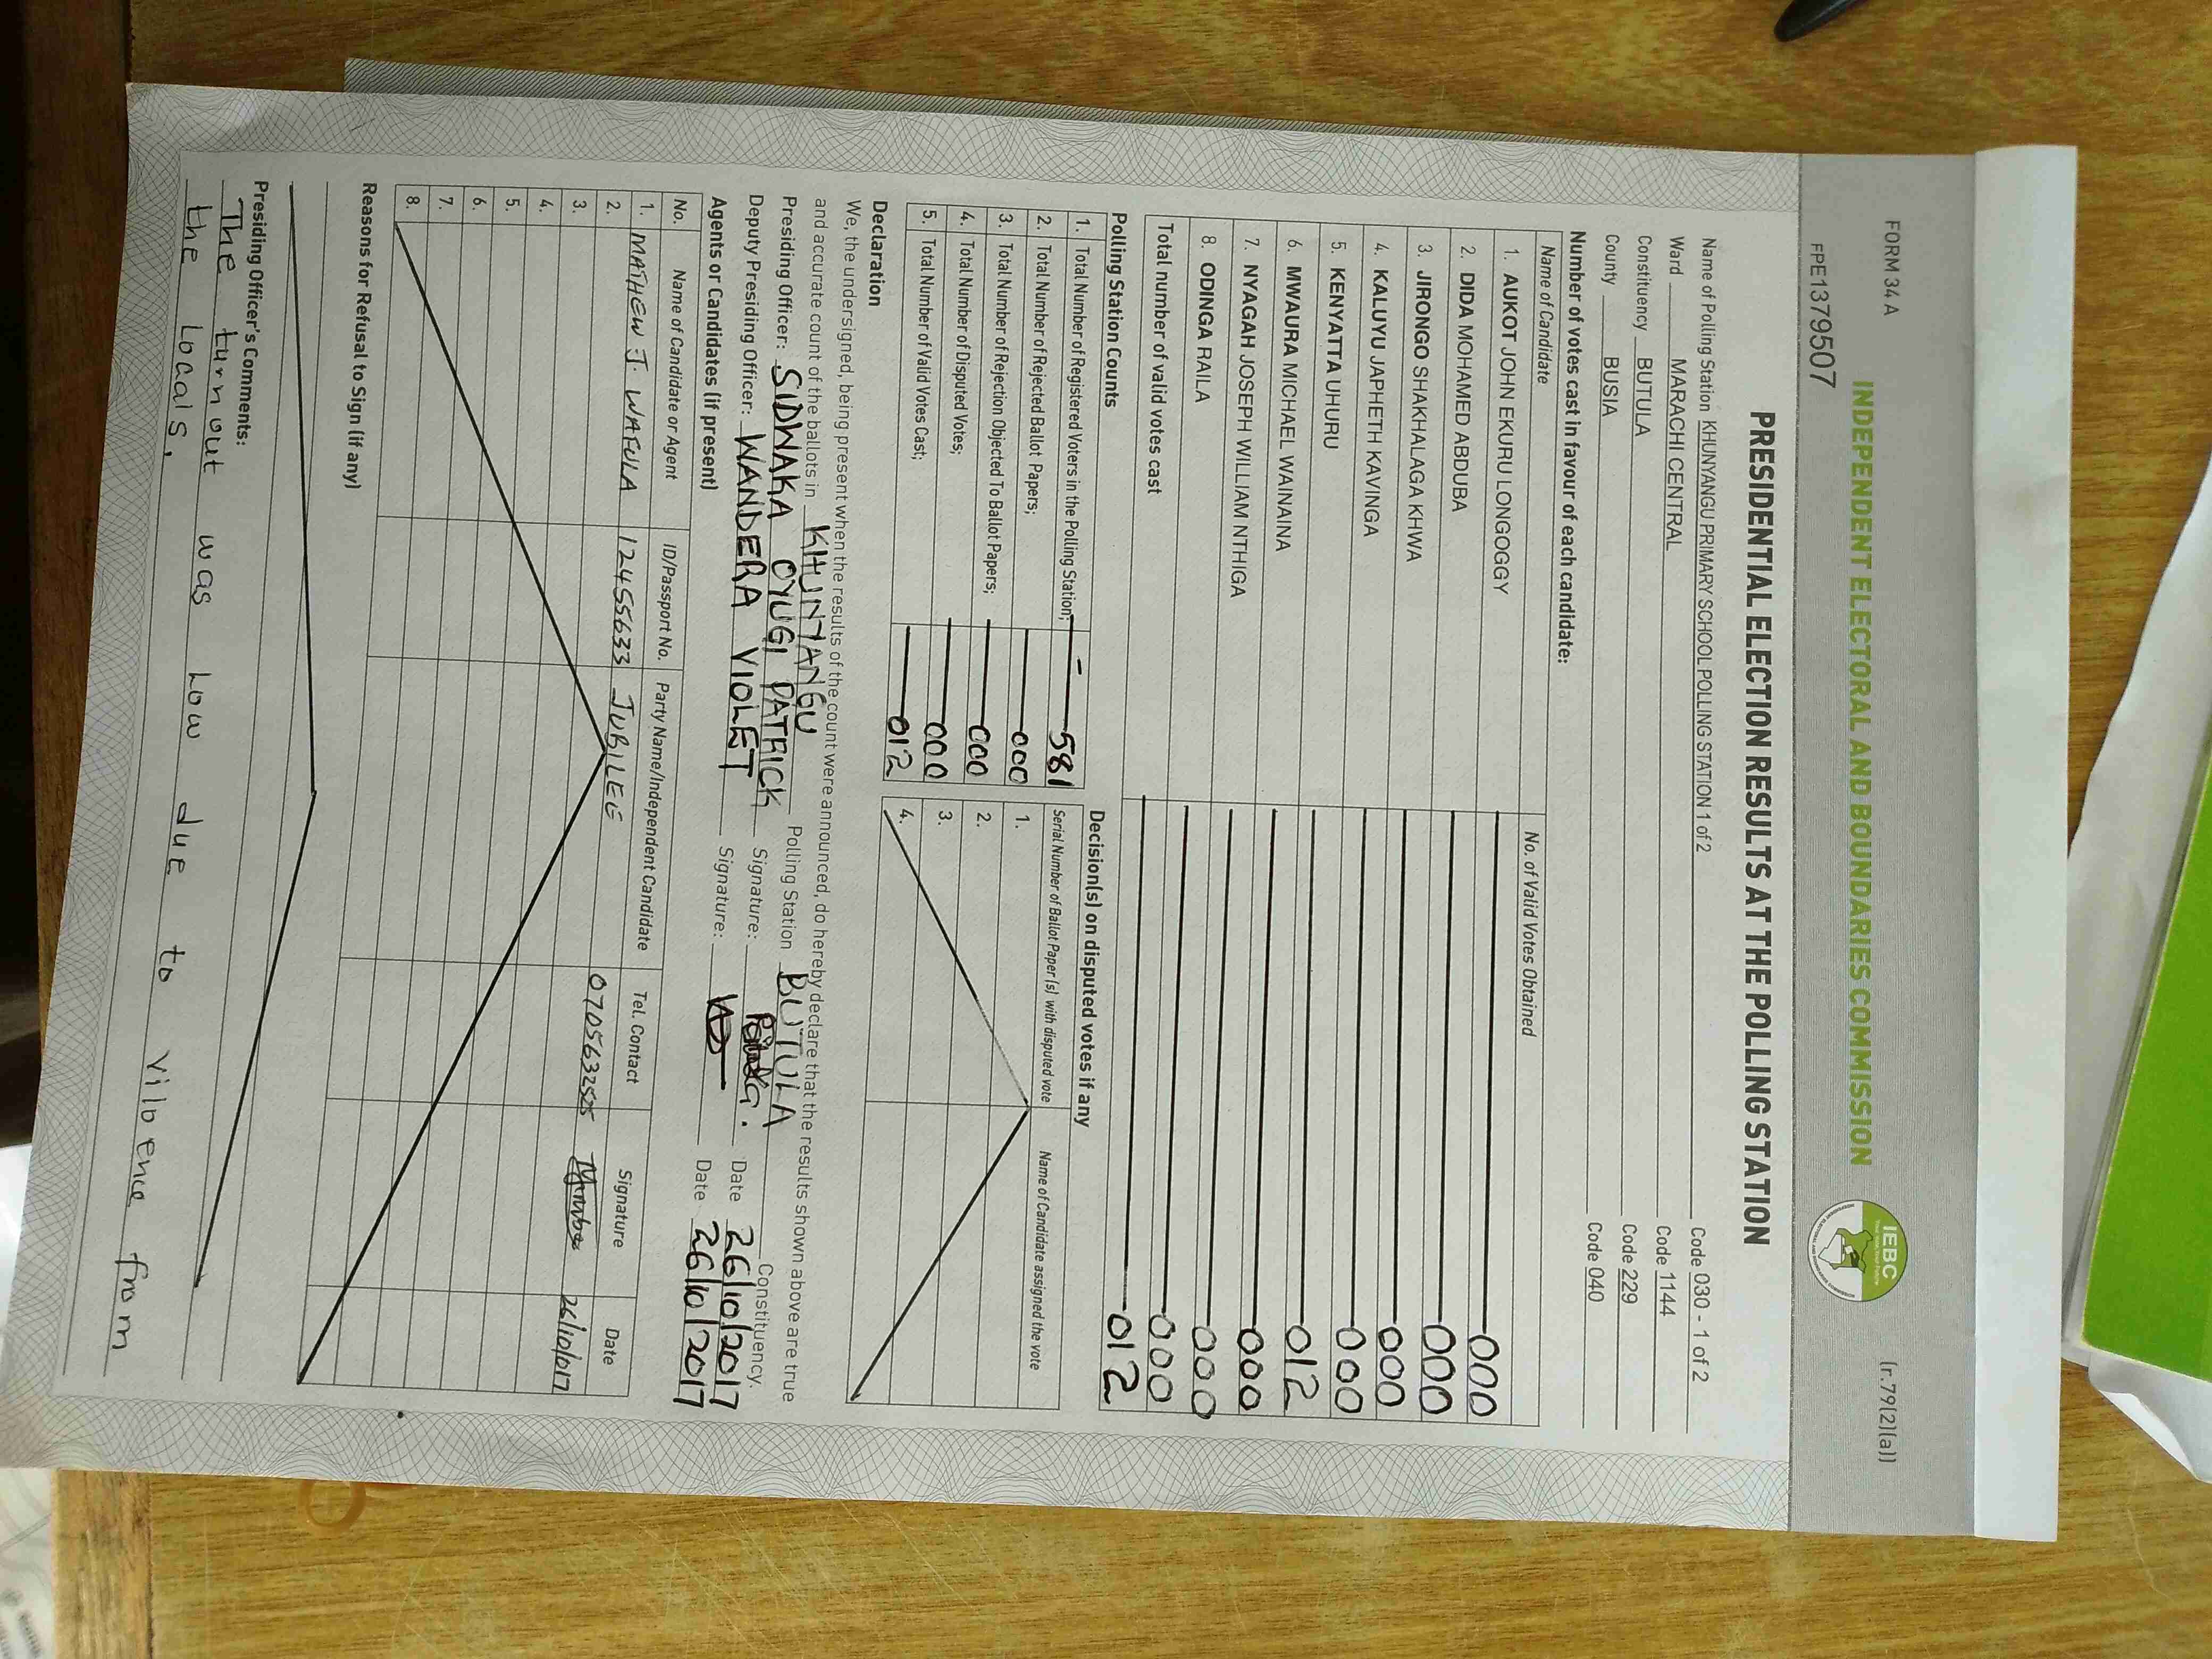 FORM 34 A
(r.79(2)(a))
INDEPENDENT ELECTORAL AND BOUNDARIES COMMISSION
IEBC
FPE1379507
PRESIDENTIAL ELECTION RESULTS AT THE POLLING STATION
Name of Polling Station KHUNYANGU PRIMARY SCHOOL POLLING STATION 1 of 2 Code 030 - 1 of 2
Ward MARACHI CENTRAL Code 1144
Constituency BUTULA Code 229
County BUSIA Code 040
Number of votes cast in favour of each candidate:
Name of Candidate No. of Valid Votes Obtained
1. AUKOT JOHN EKURU LONGOGGY 000
2. DIDA MOHAMED ABDUBA 000
3. JIRONGO SHAKHALAGA KHWA 000
4. KALUYU JAPHETH KAVINGA 000
5. KENYATTA UHURU 012
6. MWAURA MICHAEL WAINAINA 000
7. NYAGAH JOSEPH WILLIAM NTHIGA 000
8. ODINGA RAILA 000
Total number of valid votes cast 012
Polling Station Counts
1. Total Number of Registered Voters in the Polling Station; 581
2. Total Number of Rejected Ballot Papers; 000
3. Total Number of Rejection Objected To Ballot Papers; 000
4. Total Number of Disputed Votes; 000
5. Total Number of Valid Votes Cast; 012
Decision(s) on disputed votes if any
Serial Number of Ballot Paper(s) with disputed vote Name of Candidate assigned the vote
1.
2.
3.
4.
Declaration
We, the undersigned, being present when the results of the count were announced, do hereby declare that the results shown above are true
and accurate count of the ballots in KHUNYANGU Polling Station BUTULA Constituency.
Presiding Officer: SIDWAKA OYUGI PATRICK Signature: Date 26/10/2017
Deputy Presiding Officer: WANDERA VIOLET Signature: Date 26/10/2017
Agents or Candidates (if present)
No. Name of Candidate or Agent ID/Passport No. Party Name/Independent Candidate Tel. Contact Signature Date
1. MATHEW J. WAFULA 12455633 JUBILEE 0705632525 26/10/017
2.
3.
4.
5.
6.
7.
8.
Reasons for Refusal to Sign (if any)
Presiding Officer's Comments:
The turnout was low due to viloence from
the locals.